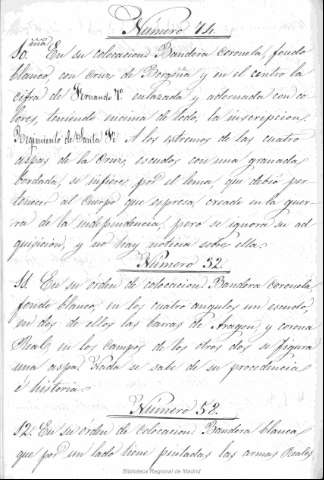 Número 74.
10. En su colocacion Bandera Coronela, fondo
blanco, con Cruz de Borgoña y en el centro la
cifra de Fernando 7º enlazada y adornada con co-
lores, teniendo encima de todo, la inscripcion
Regimiento de Santa Fé. A los estremos de las cuatro
aspas de la Cruz, escudos con una granada
bordada, se infiere por el lema, que debió per-
tenecer al Cuerpo que espresa, creado en la guer-
ra de la independencia, pero se ignora su ad-
quisicion, y no hay noticia sobre ella.
Número 32.
11. En su orden de colocacion Bandera Coronela,
fondo blanco, en los cuatro angulos un escudo,
en dos de ellos las barras de Aragon, y corona
Real; en los campos de los otros dos se figura
una aspa. Nada se sabe de su procedencia
é historia.
Número 58.
12. En su orden de colocacion Bandera blanca,
que por un lado tiene pintadas las armas Reales
Biblioteca Regional de Madrid